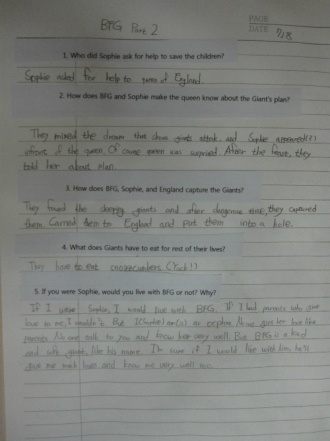 BFG Part 2
PAGE
DATE 7/28
1. Who did Sophie ask for help to save the children?
Sophie asked for help to queen of England.
2. How does BFG and Sophie make the queen know about the Giant's plan?
They mixed the dream that show giants attack, and Sophie appeared(?)
before of the queen. Of course queen was surprised. After the, they
told her about plan.
3. How does BFG, Sophie, and England capture the Giants?
They found the sleeping giants and after dangerous time, they captured
them. Carried them to England and put them into a hole.
4. What does Giants have to eat for rest of their lives?
They have to eat snozzcumbers (Yuck!)
5. If you were Sophie, would you live with BFG or not? Why?
If I were Sophie, I would live with BFG. If I had parents who give
love to me, I wouldn't. But I(Sophie) an orphan. No one give her love like
parents. No one talk to you and know her very well. But BFG is a kind
and giant, like his name. I'm sure if I would live with him he'll
give me much love and know me very well too.